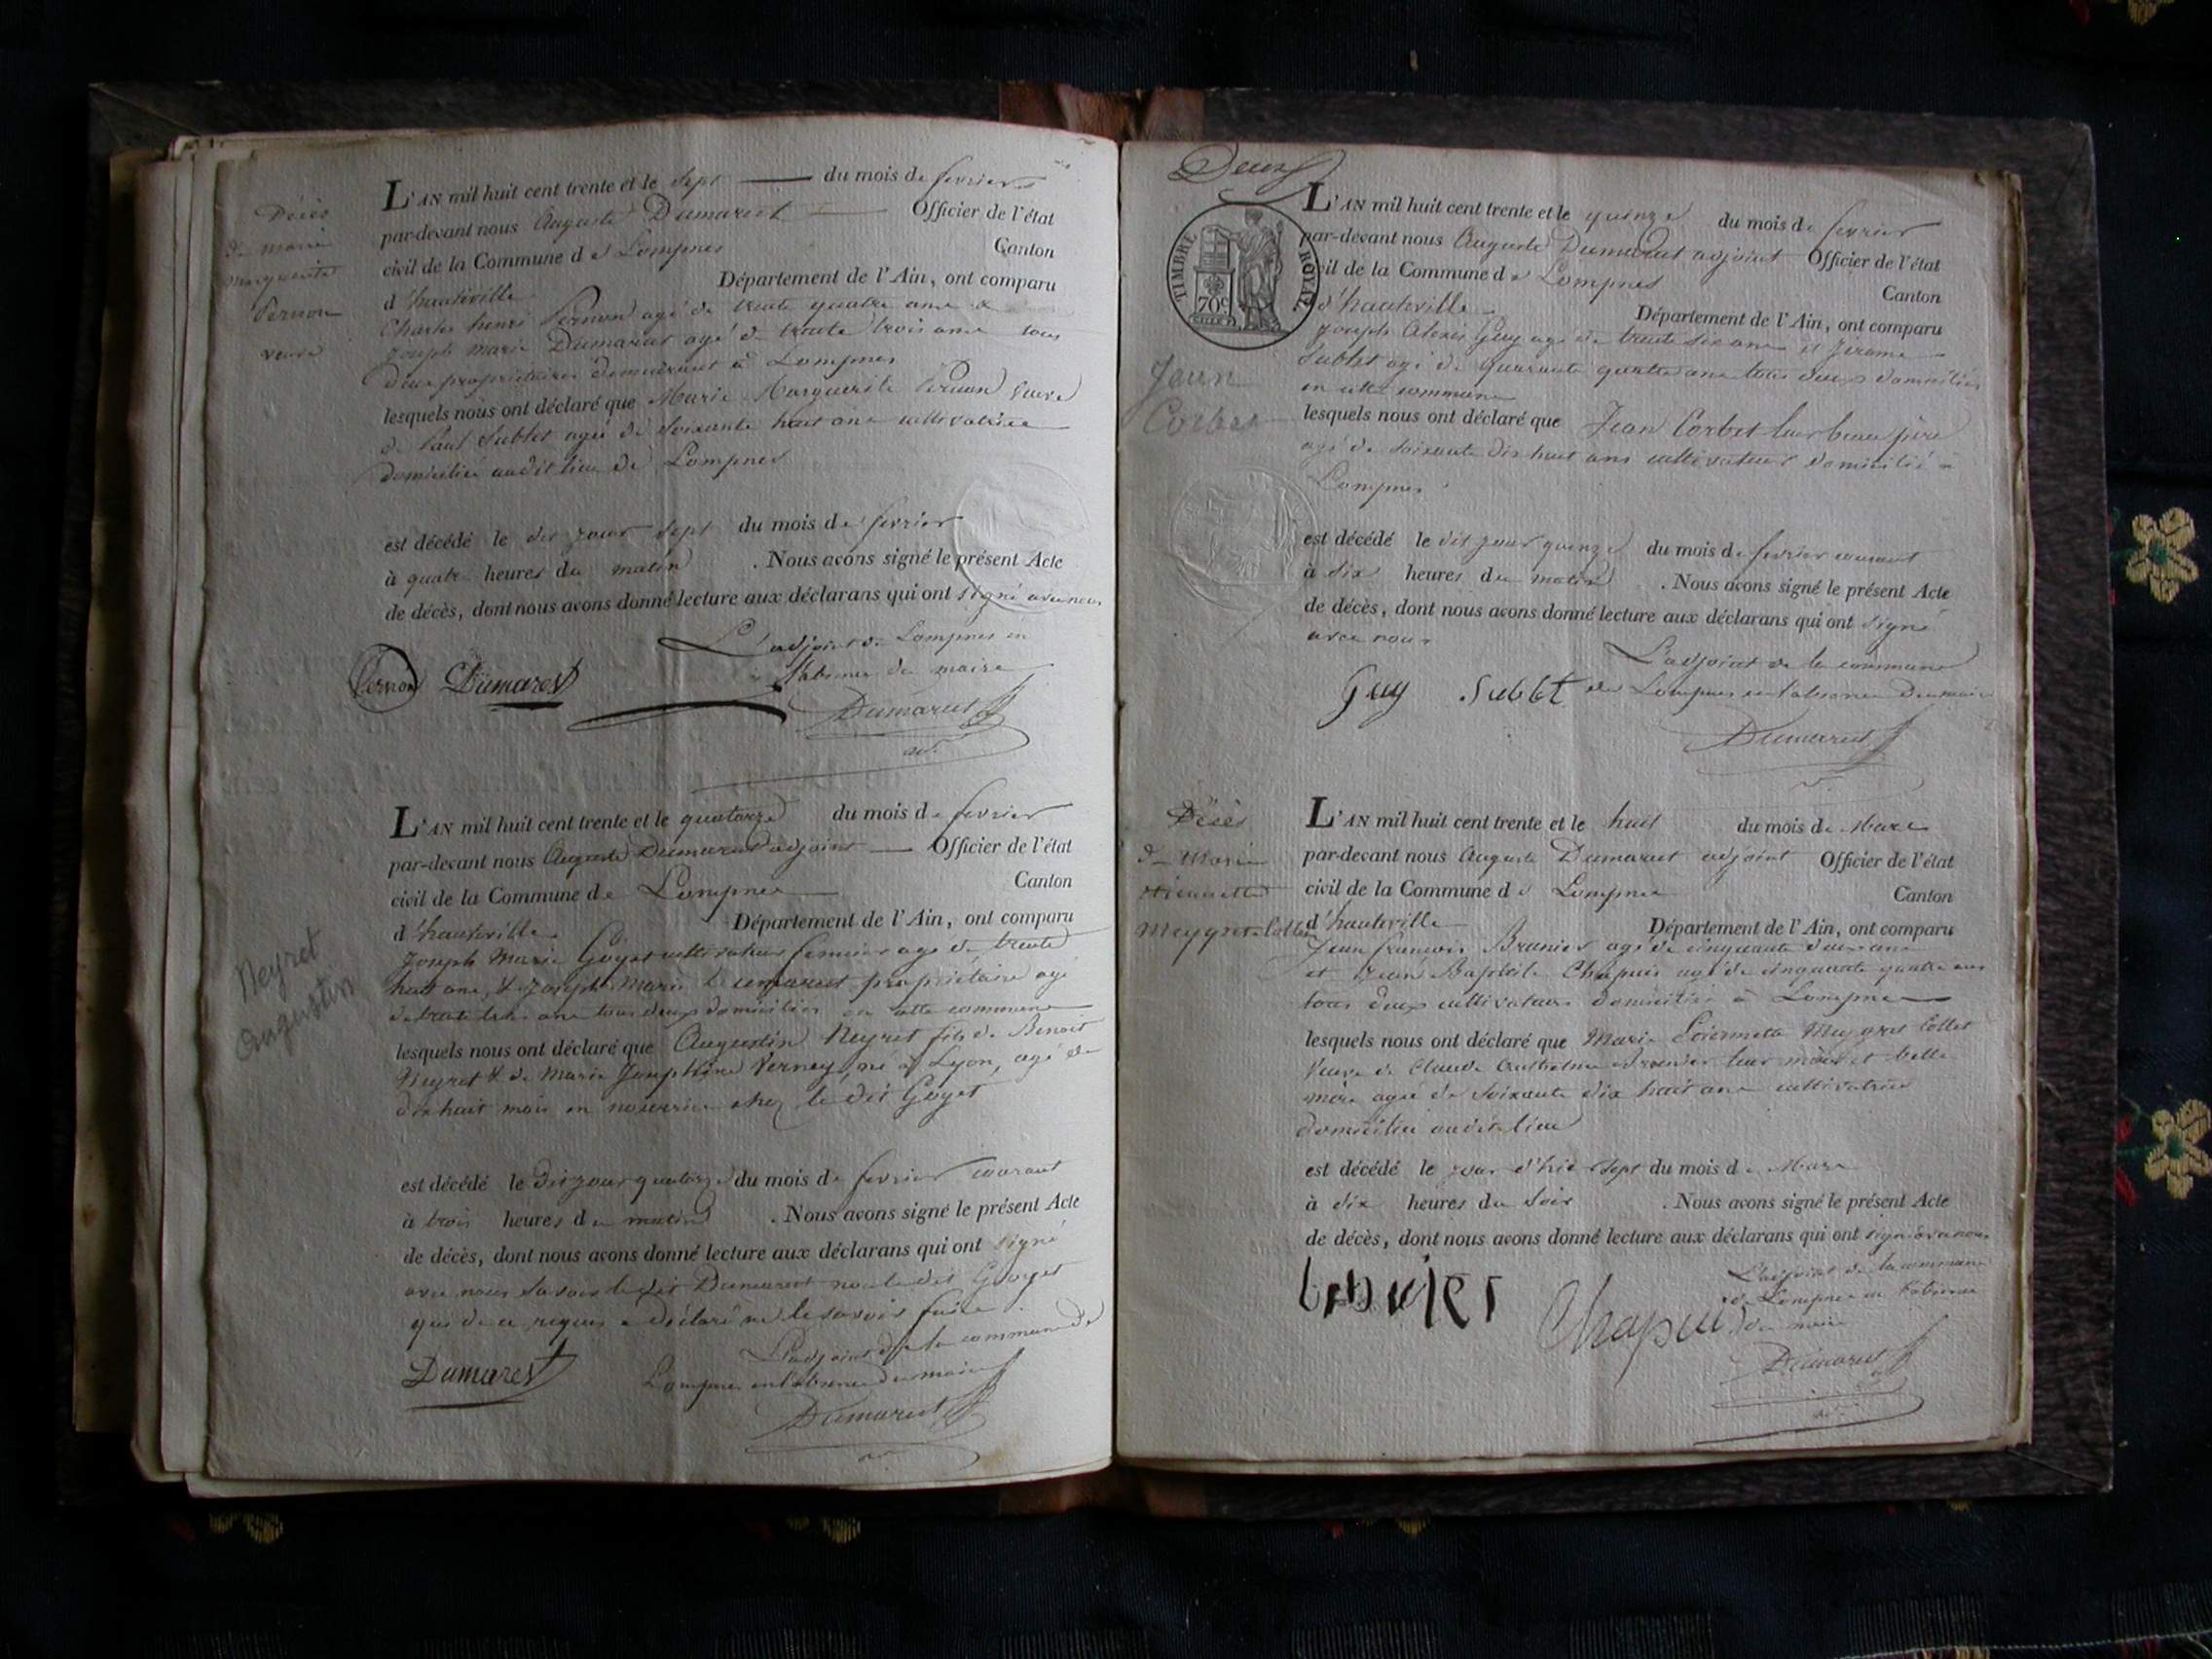 Décès
de marie
marguerite
Pernon
veuve
L'AN mil huit cent trente et le sept du mois de fevrier
par-devant nous Auguste Dumarest Officier de l'état
civil de la Commune de Lompnes Canton
d'hauteville Département de l'Ain, ont comparu
Charles henri Pernon agé de trente quatre ans &
Joseph marie Dumarest agé de trente trois ans tous
deux propriétaires demeurant à Lompnes
lesquels nous ont déclaré que Marie Marguerite Pernon veuve
de Paul Sublet agée de soixante huit ans cultivatrice
domiciliée audit lieu de Lompnes
est décédé le dit jour sept du mois de fevrier
à quatre heures du matin . Nous avons signé le présent Acte
de décès, dont nous avons donné lecture aux déclarans qui ont signé avec nous
L'adjoint de Lompnes en
l'absence du maire
Pernon Dumarest
Dumarest
adj.
Neyret
Augustin
L'AN mil huit cent trente et le quatorze du mois de fevrier
par-devant nous Auguste Dumarest adjoint Officier de l'état
civil de la Commune de Lompnes Canton
d'hauteville Département de l'Ain, ont comparu
Joseph Marie Goyet cultivateur fermier agé de trente
huit ans, & Joseph Marie Dumarest propriétaire agé
de trente trois ans tous deux domiciliés en cette commune
lesquels nous ont déclaré que Augustin Neyret fils de Benoit
Neyret & de Marie Josephine Verney, né à Lyon, agé de
dix huit mois en nourrice chez le dit Goyet
est décédé le dit jour quatorze du mois de fevrier courant
à trois heures du matin . Nous avons signé le présent Acte
de décès, dont nous avons donné lecture aux déclarans qui ont signé
avec nous savoir ledit Dumarest non ledit Goyet
qui de ce requis a déclaré ne le savoir faire.
L'adjoint de la commune de
Lompnes en l'absence du maire
Dumarest
Dumarest
Deux
TIMBRE ROYAL
70c
L'AN mil huit cent trente et le quinze du mois de fevrier
par-devant nous Auguste Dumarest adjoint Officier de l'état
civil de la Commune de Lompnes Canton
d'hauteville Département de l'Ain, ont comparu
Joseph Alexis Guy agé de trente six ans et Jérome
Sublet agé de quarante quatre ans tous deux domiciliés
en cette commune
Jean
Corbet
lesquels nous ont déclaré que Jean Corbet leur beau père
agé de soixante dix huit ans cultivateur domicilié à
Lompnes
est décédé le dit jour quinze du mois de fevrier courant
à dix heures du matin . Nous avons signé le présent Acte
de décès, dont nous avons donné lecture aux déclarans qui ont signé
avec nous
L'adjoint de la commune
Guy Sublet de Lompnes en l'absence du maire
Dumarest
Décès
de Marie
Etiennette
Meygret-Collet
L'AN mil huit cent trente et le huit du mois de Mars
par-devant nous Auguste Dumarest adjoint Officier de l'état
civil de la Commune de Lompnes Canton
d'hauteville Département de l'Ain, ont comparu
Jean françois Brunier agé de cinquante deux ans
et Jean Baptiste Chapuis agé de cinquante quatre ans
tous deux cultivateurs domiciliés à Lompnes
lesquels nous ont déclaré que Marie Etiennette Meygret Collet
Veuve de Claude Anthelme Brunier leur mère et belle
mère agée de soixante dix huit ans cultivatrice
domiciliée audit lieu
est décédé le jour d'hier sept du mois de Mars
à dix heures du soir . Nous avons signé le présent Acte
de décès, dont nous avons donné lecture aux déclarans qui ont signé avec nous
L'adjoint de la commune
de Lompnes en l'absence
Chapuis du maire
Dumarest